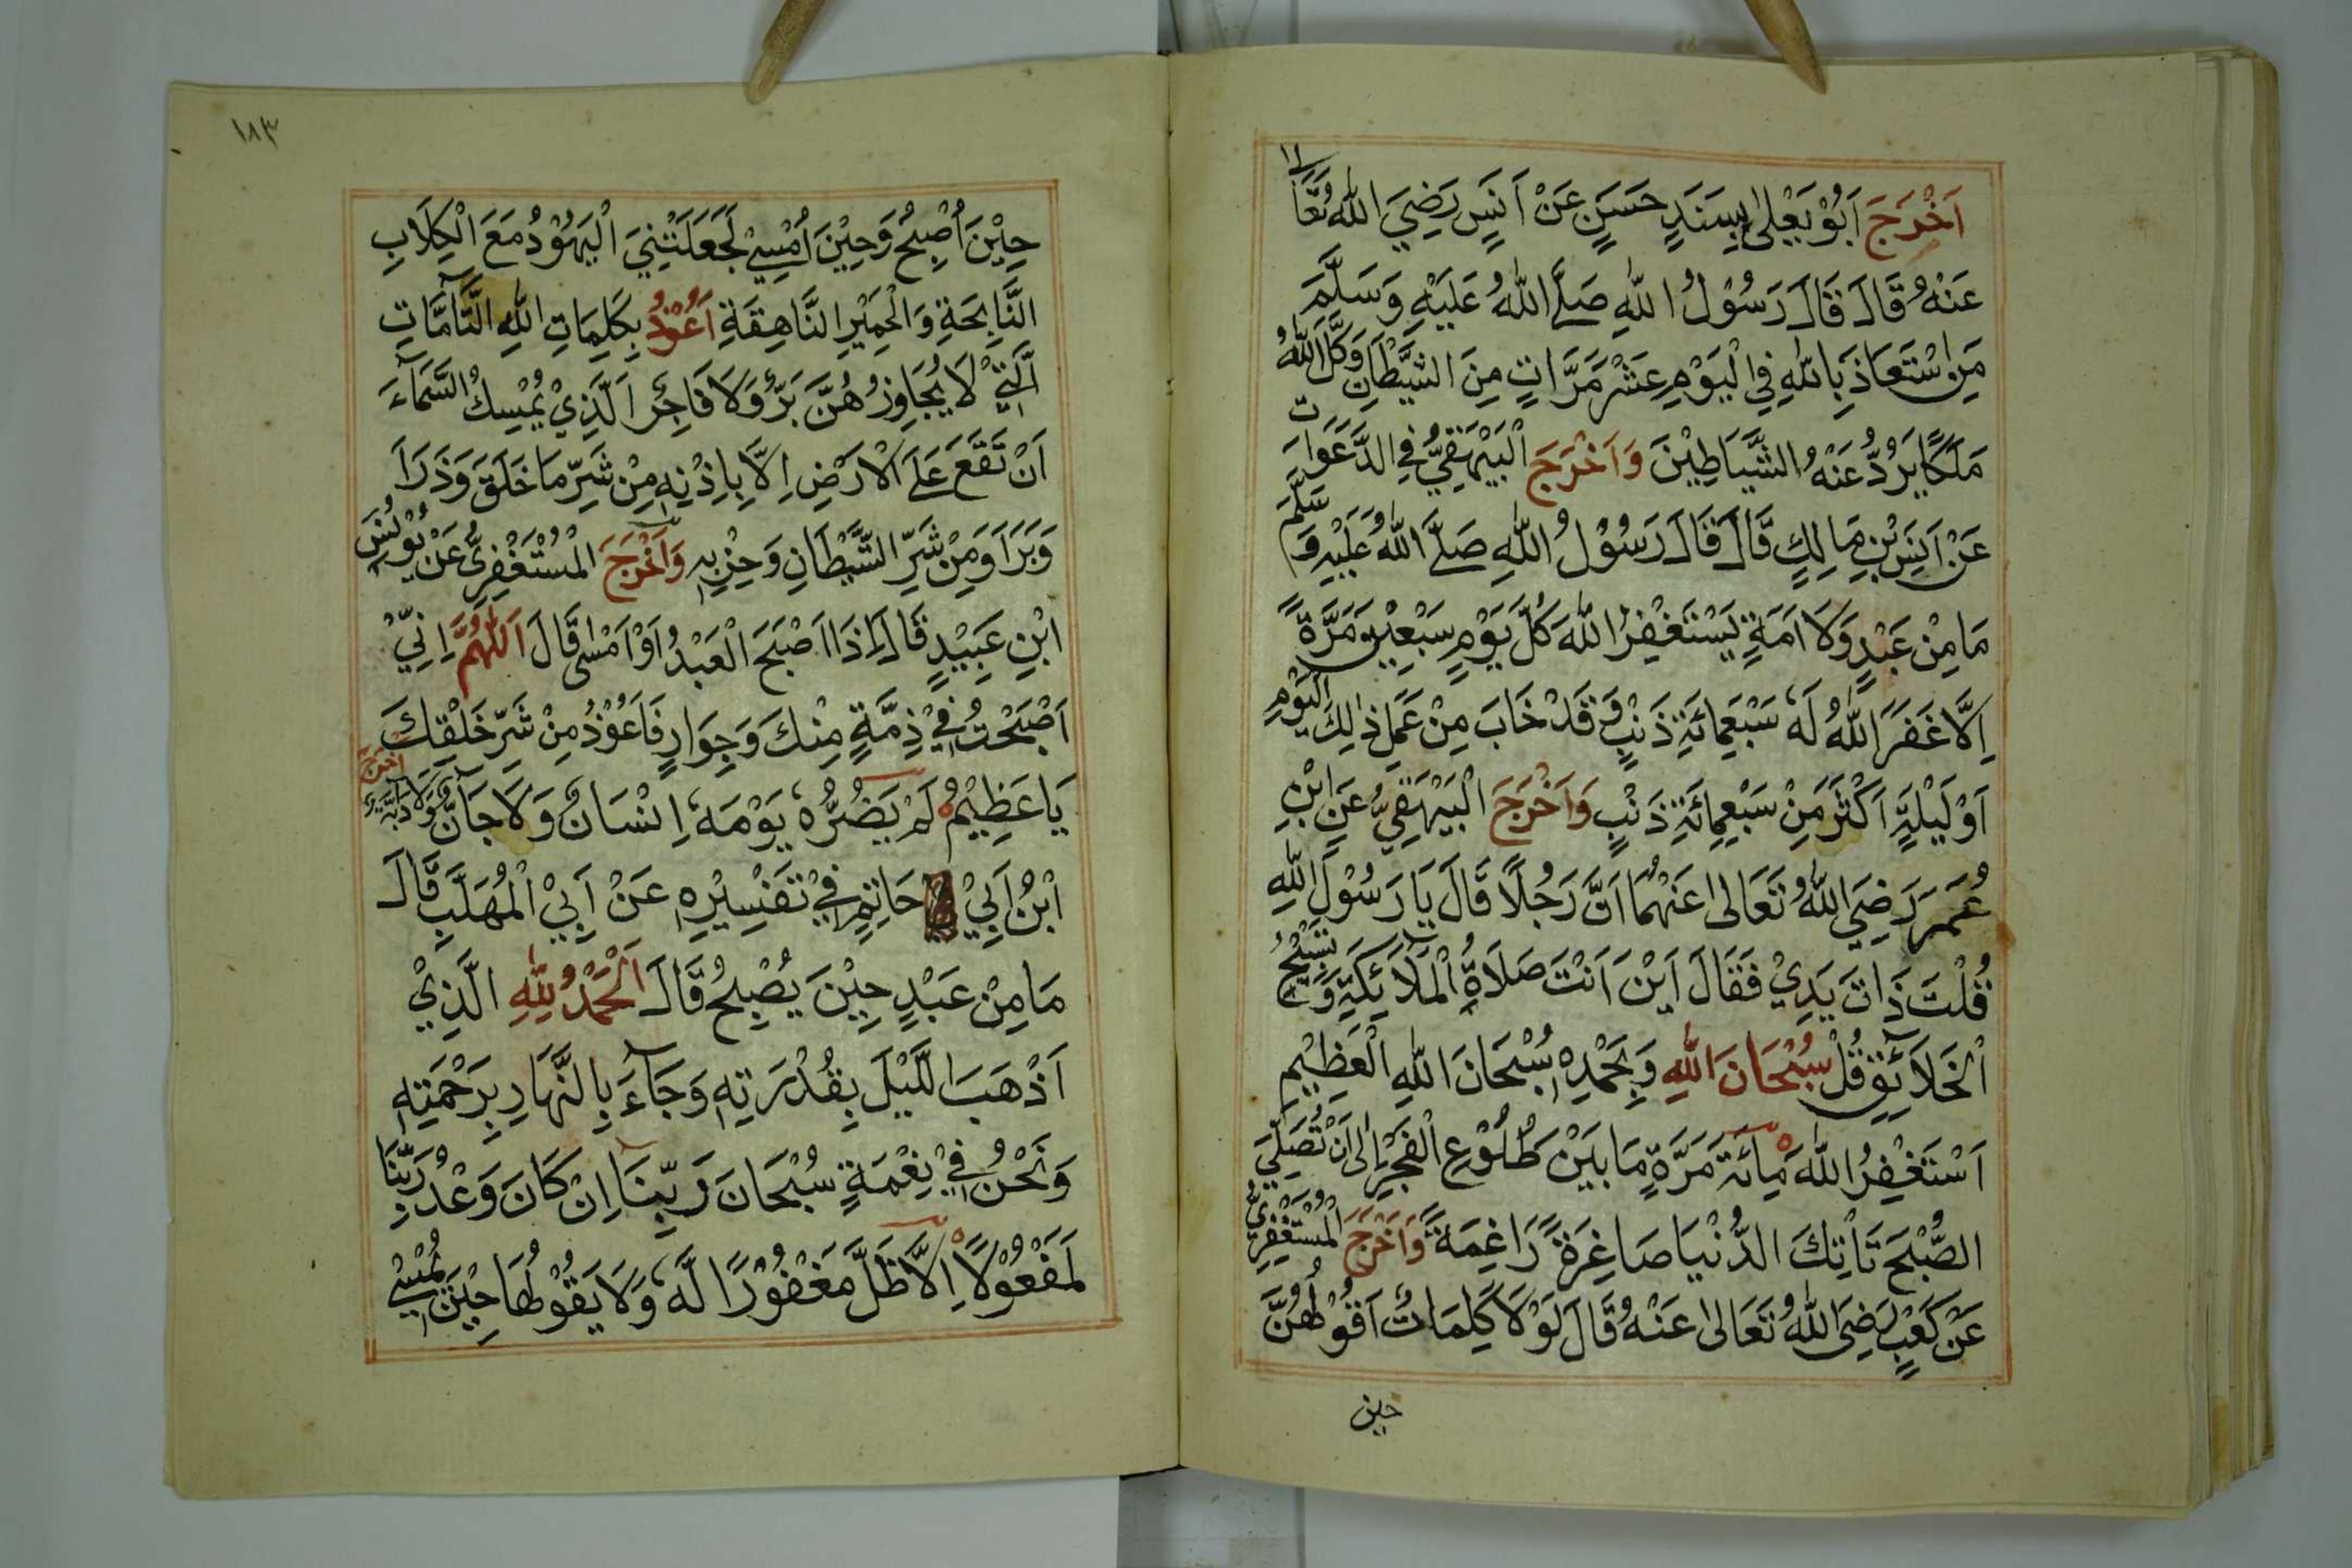 اَخْرَجَ اَبُوْ يَعْلٰى بِسَنَدٍ حَسَنٍ عَنْ اَنَسٍ رَضِيَ اللّٰهُ تَعَالٰى
عَنْهُ قَالَ قَالَ رَسُوْلُ اللّٰهِ صَلَّى اللّٰهُ عَلَيْهِ وَسَلَّمَ
مَنِ اسْتَعَاذَ بِاللّٰهِ فِي الْيَوْمِ عَشْرَ مَرَّاتٍ مِنَ الشَّيْطَانِ وَكَّلَ اللّٰهُ
مَلَكًا يَرُدُّ عَنْهُ الشَّيَاطِيْنَ وَاَخْرَجَ الْبَيْهَقِيُّ فِي الدَّعَوَاتِ
عَنْ اَنَسِ بْنِ مَالِكٍ قَالَ قَالَ رَسُوْلُ اللّٰهِ صَلَّى اللّٰهُ عَلَيْهِ وَسَلَّمَ
مَا مِنْ عَبْدٍ وَلَا اَمَةٍ يَسْتَغْفِرُ اللّٰهَ كُلَّ يَوْمٍ سَبْعِيْنَ مَرَّةً
اِلَّا غَفَرَ اللّٰهُ لَهٗ سَبْعَمِائَةِ ذَنْبٍ وَقَدْ خَابَ مِنْ عَمَلِ ذٰلِكَ الْيَوْمِ
اَوْ لَيْلَةٍ اَكْثَرَ مِنْ سَبْعِمِائَةِ ذَنْبٍ وَاَخْرَجَ الْبَيْهَقِيُّ عَنِ ابْنِ
عُمَرَ رَضِيَ اللّٰهُ تَعَالٰى عَنْهُمَا اَنَّ رَجُلًا قَالَ يَا رَسُوْلَ اللّٰهِ
قُلْتَ ذَاتَ يَدِيْ فَقَالَ اَيْنَ اَنْتَ صَلَاةِ الْمَلَآئِكَةِ وَتَسْبِيْحِ
الْخَلَآئِقِ قُلْ سُبْحَانَ اللّٰهِ وَبِحَمْدِهٖ سُبْحَانَ اللّٰهِ الْعَظِيْمِ
اَسْتَغْفِرُ اللّٰهَ مِائَةَ مَرَّةٍ مَا بَيْنَ طُلُوْعِ الْفَجْرِ اِلٰى اَنْ تُصَلِّيَ
الصُّبْحَ تَاْتِكَ الدُّنْيَا صَاغِرَةً رَاغِمَةً وَاَخْرَجَ الْمُسْتَغْفِرِيُّ
عَنْ كَعْبٍ رَضِيَ اللّٰهُ تَعَالٰى عَنْهُ قَالَ لَوْلَا كَلِمَاتٌ اَقُوْلُهُنَّ
حين
١٨٣
حِيْنَ اُصْبِحُ وَحِيْنَ اُمْسِيْ لَجَعَلَتْنِيَ الْيَهُوْدُ مَعَ الْكِلَابِ
النَّابِحَةِ وَالْحَمِيْرِ النَّاهِقَةِ اَعُوْذُ بِكَلِمَاتِ اللّٰهِ التَّآمَّاتِ
الَّتِيْ لَا يُجَاوِزُهُنَّ بَرٌّ وَلَا فَاجِرٌ اَلَّذِيْ يُمْسِكُ السَّمَآءَ
اَنْ تَقَعَ عَلَى الْاَرْضِ اِلَّا بِاِذْنِهٖ مِنْ شَرِّ مَا خَلَقَ وَذَرَاَ
وَبَرَاَ وَمِنْ شَرِّ الشَّيْطَانِ وَحِزْبِهٖ وَاَخْرَجَ الْمُسْتَغْفِرِيُّ عَنْ يُوْنُسَ
ابْنِ عُبَيْدٍ قَالَ اِذَا اَصْبَحَ الْعَبْدُ اَوْ اَمْسٰى قَالَ اَللّٰهُمَّ اِنِّيْ
اَصْبَحْتُ فِيْ ذِمَّةٍ مِنْكَ وَجِوَارٍ فَاَعُوْذُ مِنْ شَرِّ خَلْقِكَ
يَا عَظِيْمُ لَمْ يَضُرُّهٗ يَوْمَهٗ اِنْسَانٌ وَلَا جَآنٌّ وَلَا دَآبَّةٌ وَاَخْرَجَ
ابْنُ اَبِيْ حَاتِمٍ فِيْ تَفْسِيْرِهٖ عَنْ اَبِيْ الْمُهَلَّبِ قَالَ
مَا مِنْ عَبْدٍ حِيْنَ يُصْبِحُ قَالَ اَلْحَمْدُ لِلّٰهِ الَّذِيْ
اَذْهَبَ اللَّيْلَ بِقُدْرَتِهٖ وَجَآءَ بِالنَّهَارِ بِرَحْمَتِهٖ
وَنَحْنُ فِيْ نِعْمَةٍ سُبْحَانَ رَبِّنَا اِنْ كَانَ وَعْدُ رَبِّنَا
لَمَفْعُوْلًا اِلَّا ظَلَّ مَغْفُوْرًا لَّهٗ وَلَا يَقُوْلُهَا حِيْنَ يُمْسِيْ